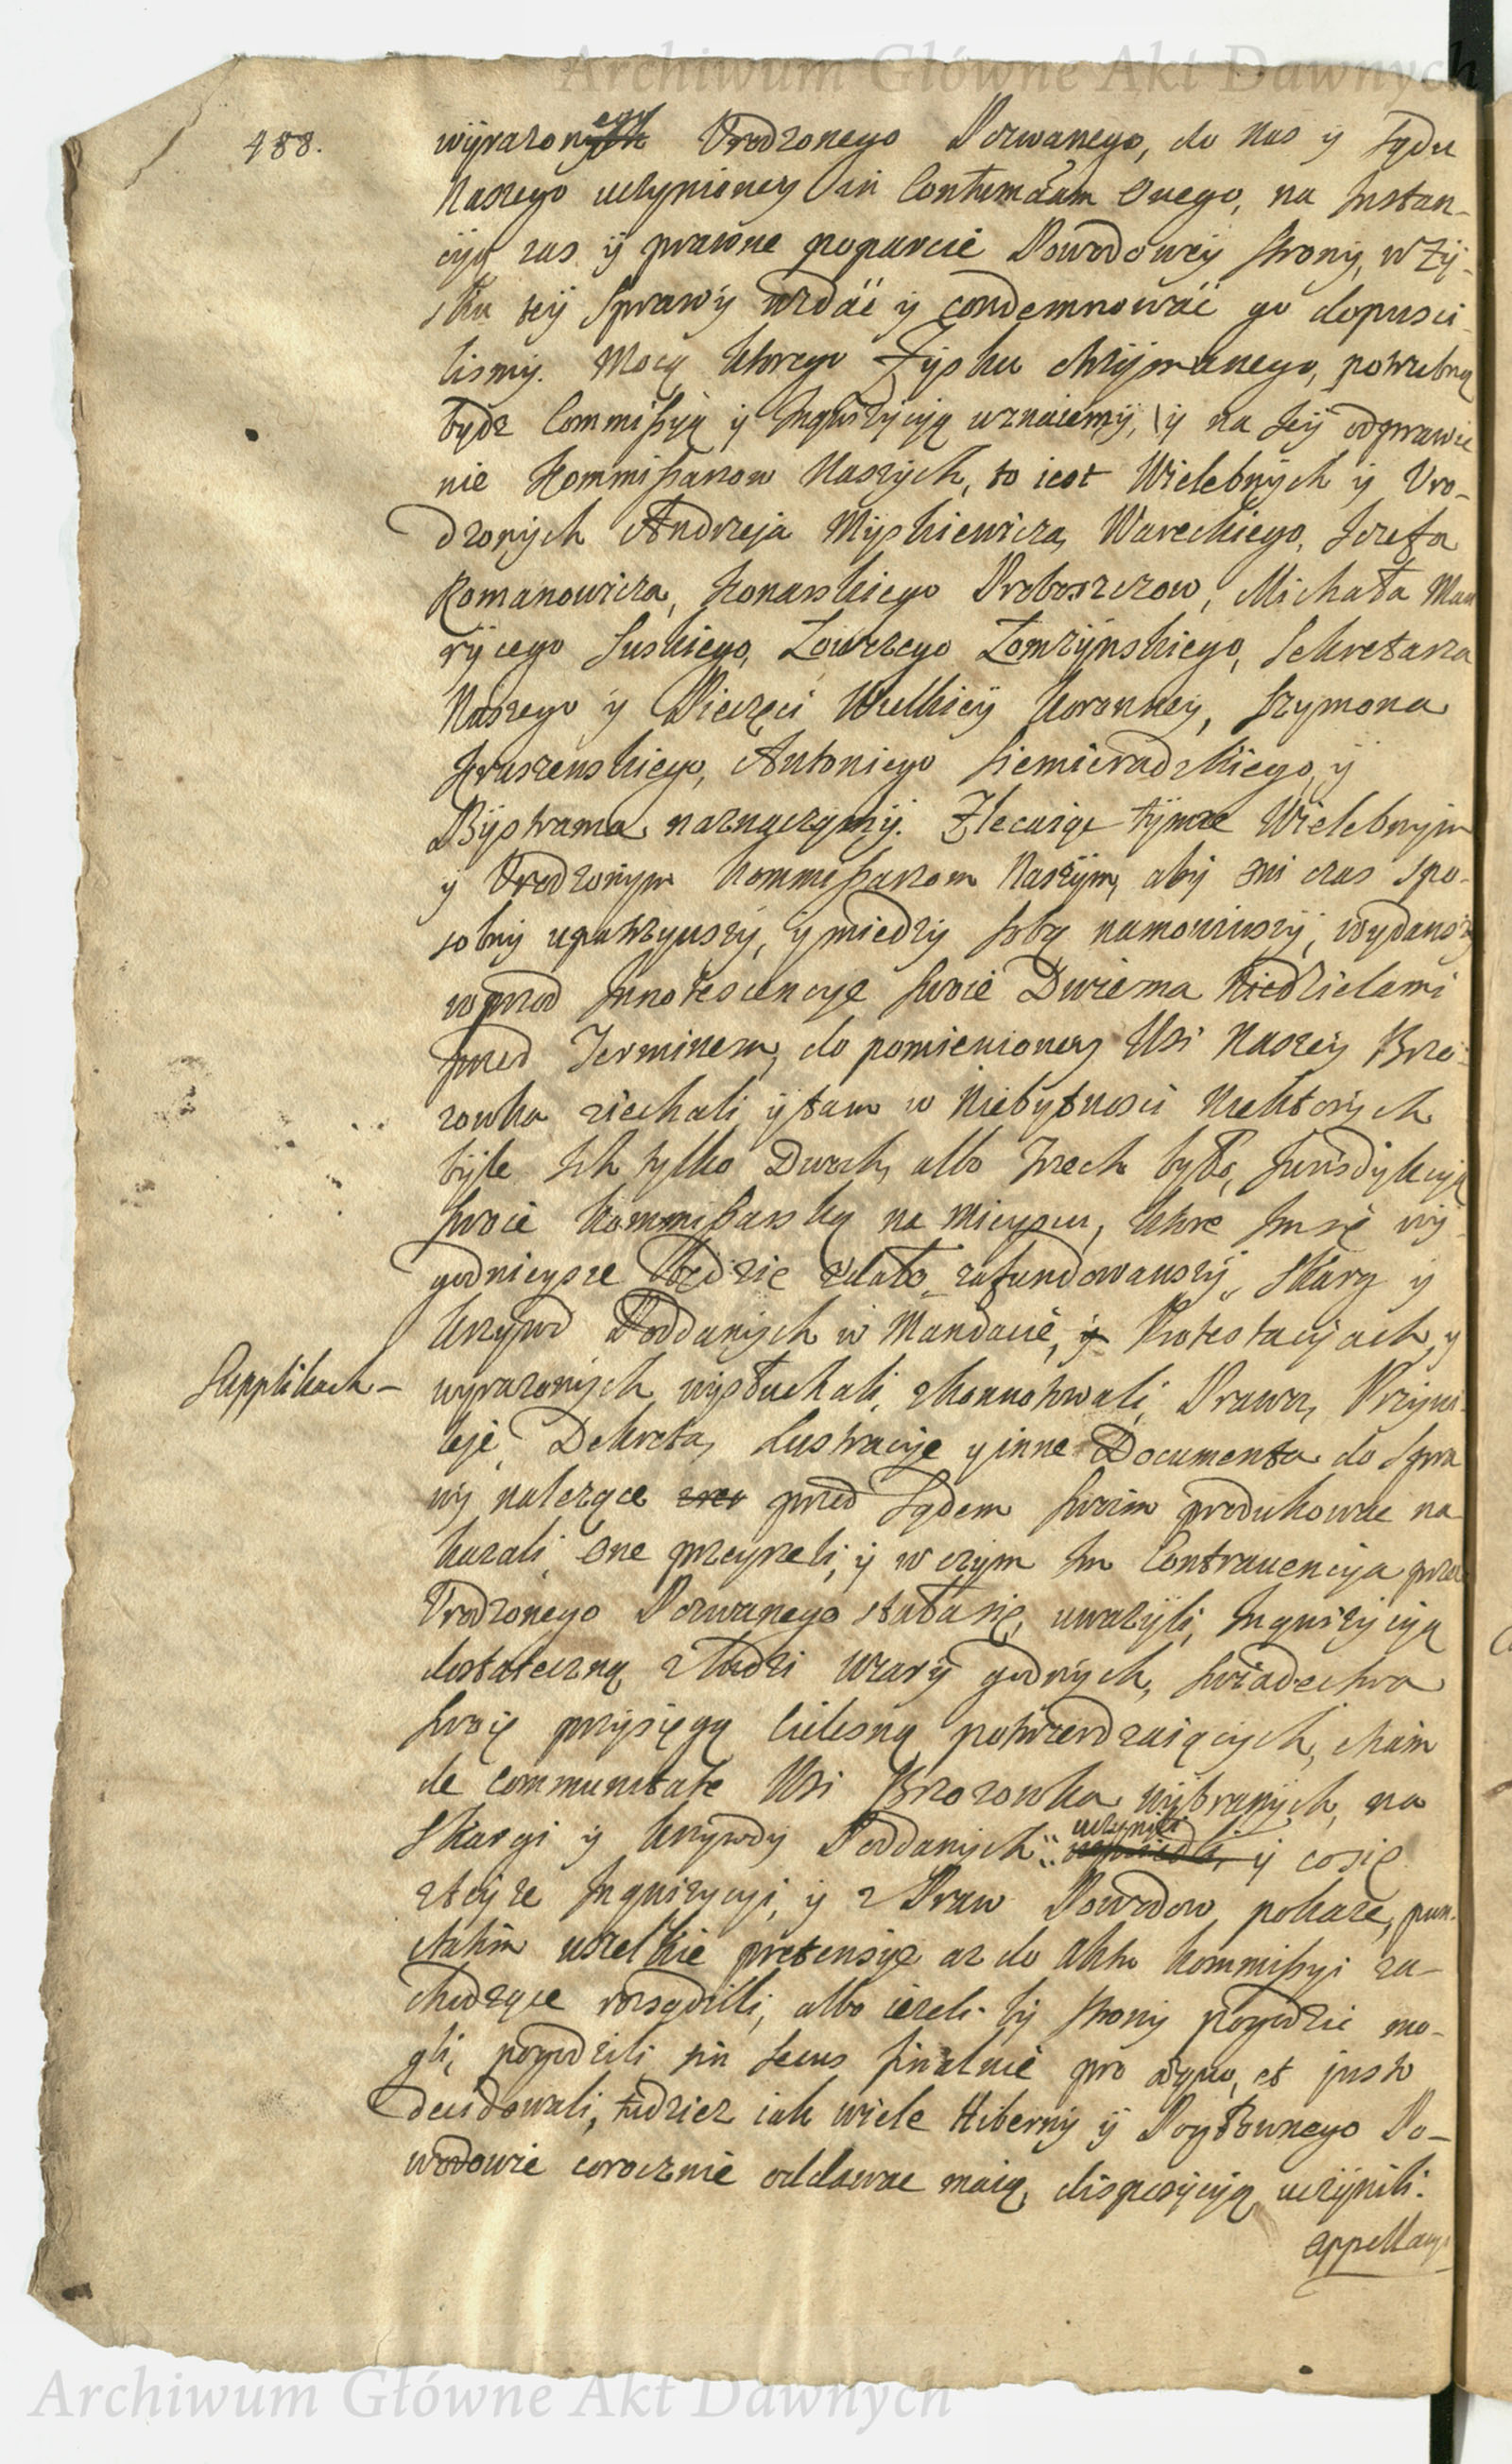 Archiwum Główne Akt Dawnych
488.
wyrazonego Urodzonego Pozwanego, do Nas y Sądu
Naszego uczynioney in Contumaciam Onego, na Instan-
cyą zas y prawne poparcie Powodowey strony, w Zy-
sku tey Sprawy wzdać y condemnować go dopusci-
lismy. Mocą ktorego Zysku otrzymanego, potrzebną
bydz Commissyą y Inquizycyją uznaiemy, y na Jey odprawie
nie Kommissarzow Naszych, to iest Wielebnych y Uro-
dzonych Andrzeja Myszkiewicza, Wareckiego, Jozefa
Romanowicza, Konarskiego Proboszczow, Michała Mau
rycego Suskiego, Łowczego Łomzynskiego, Sekretarza
Naszego y Pieczęci Wielkiey Koronney, Szymona
Antoniego Siemieradzkiego, y
Bystrama, naznaczamy. Zlecaiąc tymze Wielebnym
y Urodzonym Kommissarzom Naszym, aby oni czas spo-
sobny upatrzywszy, y miedzy sobą namowiwszy, wydawszy
wprzod Innotescencyę swoie Dwiema Niedzielami
przed Terminem, do pomienioney Wsi Naszey Brzo-
zowka ziechali y tam w Niebytnosci Niektorych
byle Ich tylko Dwoch, albo Trzech było, Jurisdykcyą
swoie Kommissarską na Mieyscu, ktore Im się wy-
godnieysze będzie zdało, zafundowawszy, Skarg y
krzywd Poddanych w Mandacie, Protestacyjach, y
Supplikach – wyrazonych wysłuchali, zkonnotowali, Prawa, Przywi-
leje, Dekreta, Lustracye y inne Documenta do Spra
wy nalezące przed Sądem swoim produkowac na
kazali, one przeyzeli, y w czym Im Contravencyja przez
Urodzonego Pozwanego stała się, uwazyli, Inquizycyją
dostateczną z Ludzi wiary godnych, swiadectwa
swoię przysięgą Cielesną potwierdzaiących, etiam
de communitate Wsi Brzozowka wybranych, na
Skargi y krzywdy Poddanych uczynili y co się
z teyze Inquizycyi, y z Praw Powodow pokaze, pun-
ctatim wszelkie pretensye az do Aktu Kommissyi za-
chodzące rozsądzili, albo iezeli by strony pogodzic mo-
gli, pogodzili sin secus finalnie pro aequo, et justo
decidowali, tudziez iak wiele Hiberny y Pogłownego Po-
wodowie corocznie oddawac maią, dispozycyją uczynili.
appellacyi
Archiwum Główne Akt Dawnych